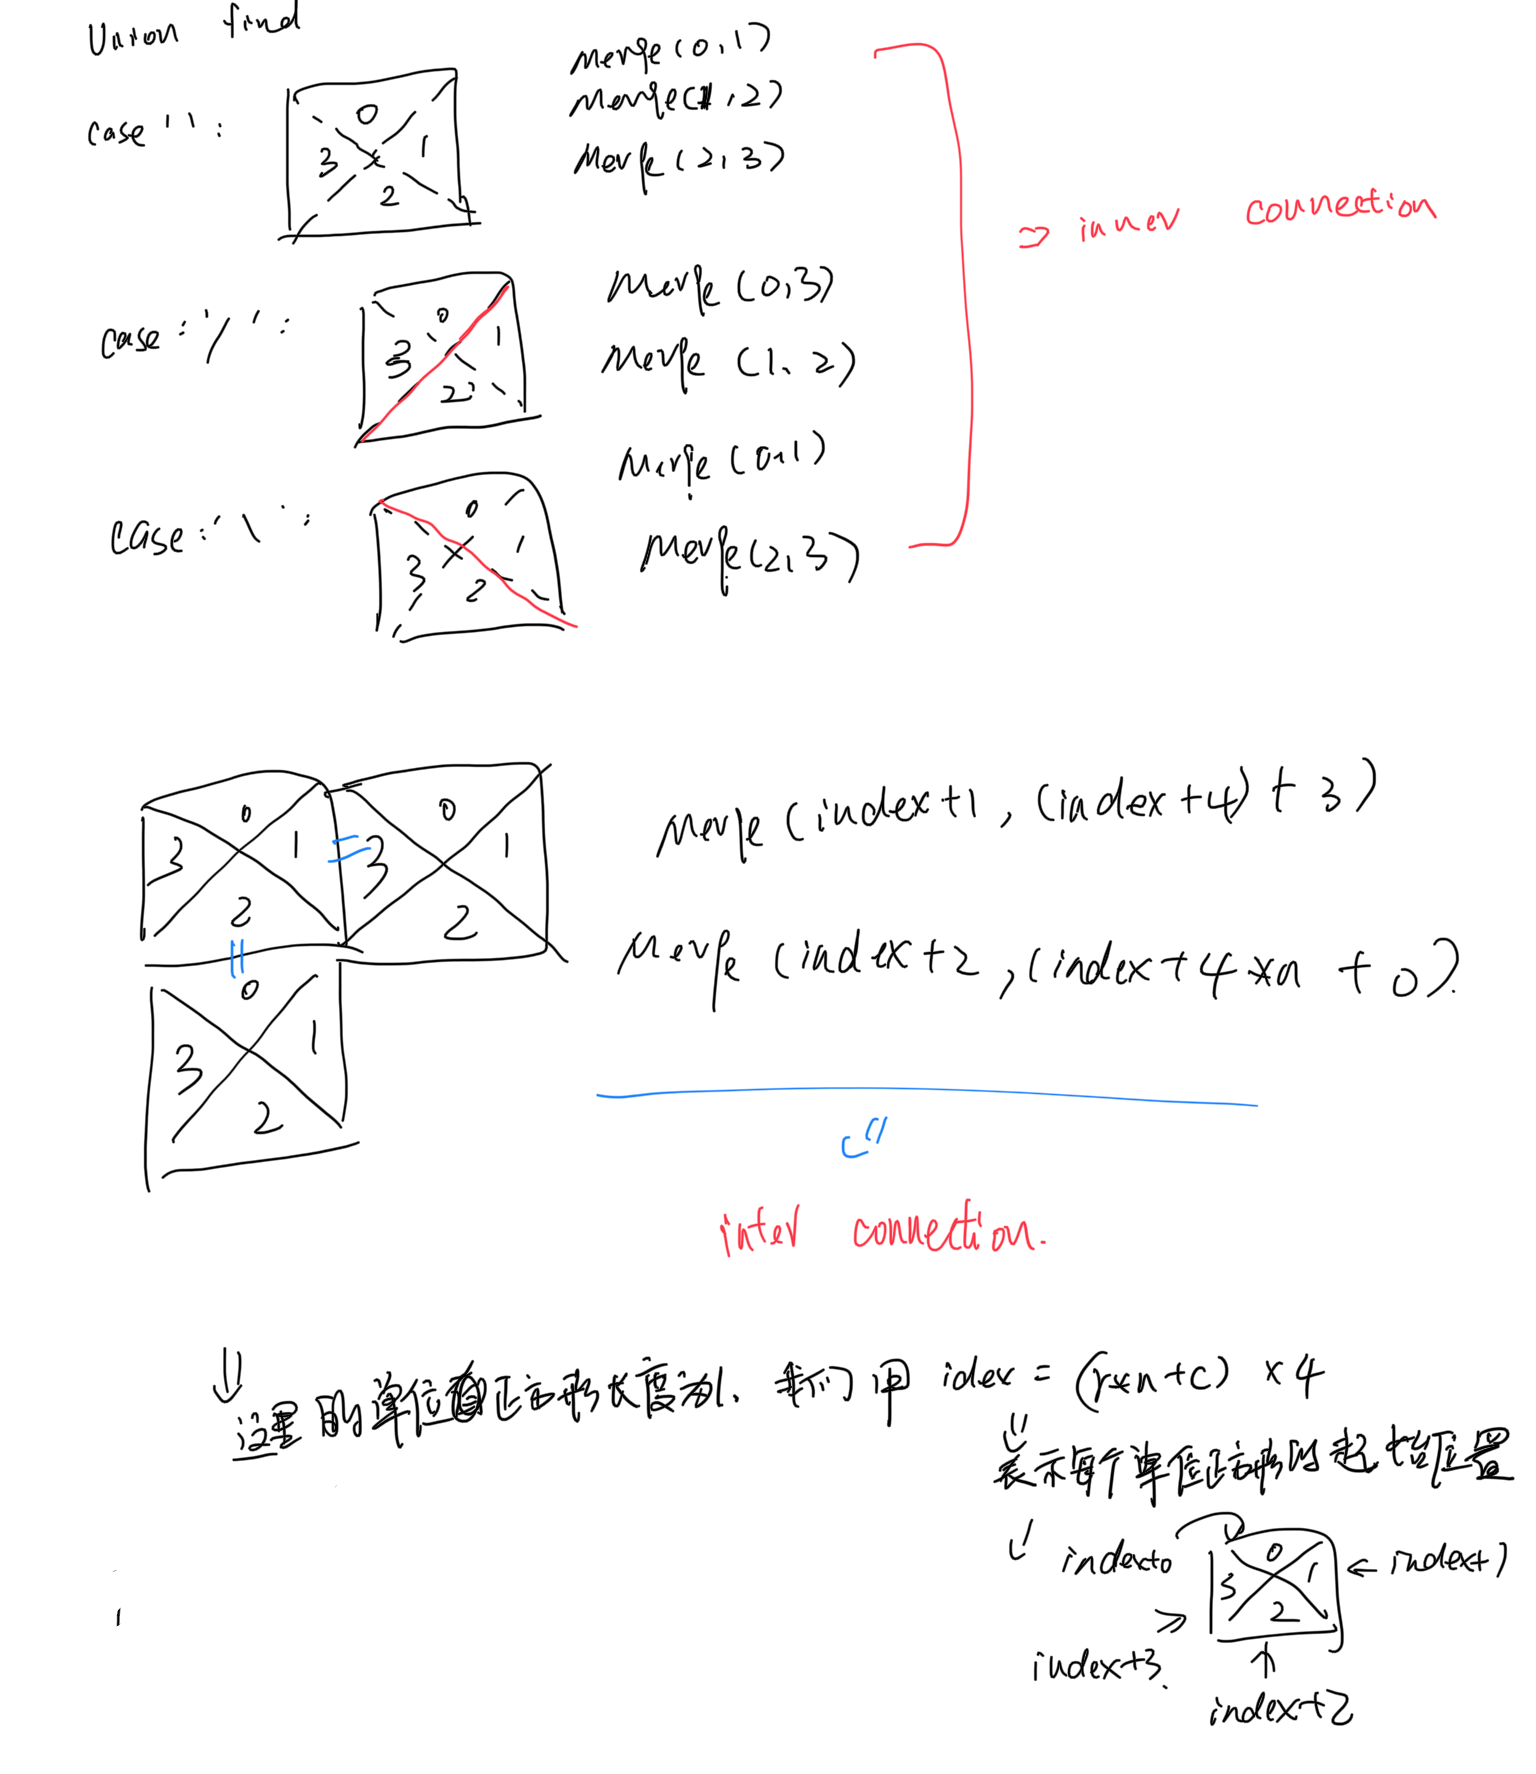 Union find
case ' ' :
0
1
2
3
Merge(0,1)
Merge(1,2)
Merge(2,3)
=> inner connection
case : '/' :
0
1
2
3
Merge(0,3)
Merge(1、2)
case : '\' :
0
1
2
3
Merge(0,1)
Merge(2,3)
0
1
2
3
0
1
2
3
0
1
2
3
Merge(index+1, (index+4)+3)
Merge(index+2, (index+4*n+0).
inter connection.
这里的单位正方形长度为1、我们用 idex = (r*n+c) ×4
表示每个单位正方形的起始位置
index+0
0
1
2
3
← index+1
index+3.
index+2